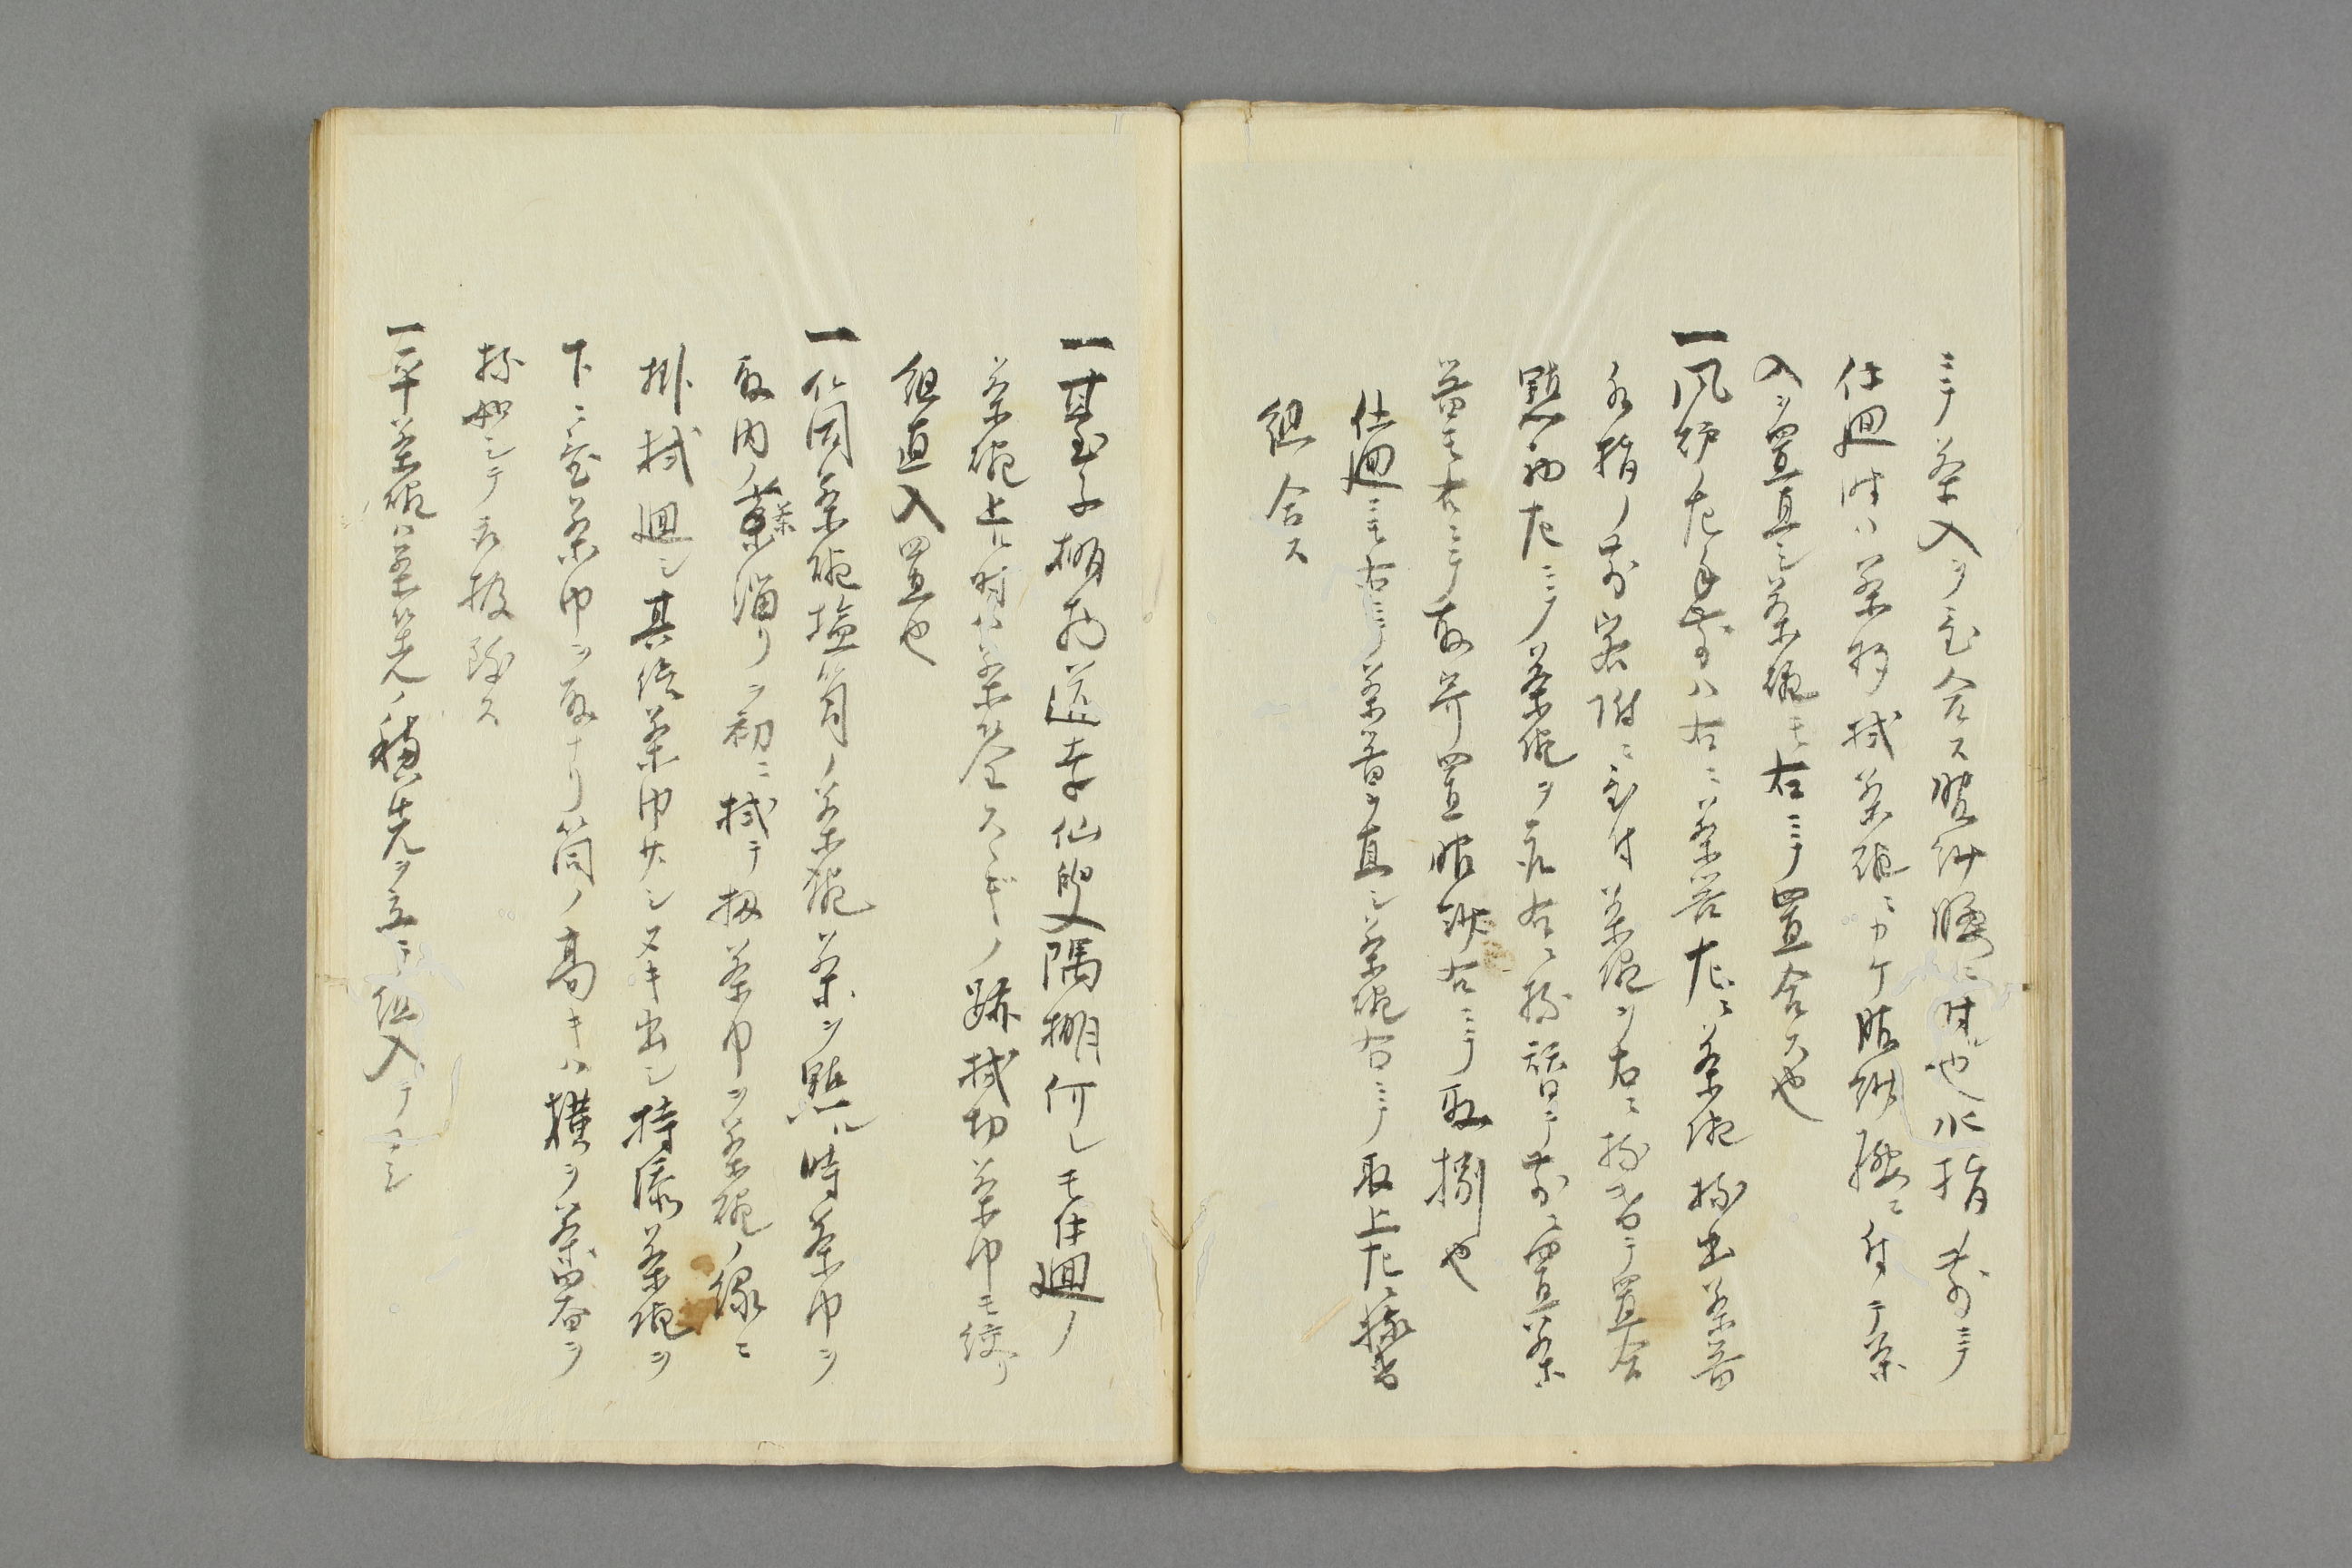 ニテ茶入ヲ置合ス服紗腰ニ付ル也水指ノ前ニテ
仕廻時ハ茶杓拭茶碗ニカケ服紗腰ニ付テ茶
入ヲ置直シ茶碗モ右ニテ置合ス也
一風炉ノ左手前ハ右ニ茶器左ニ茶碗持出茶器
水指ノ前客附ニ置付茶碗ヲ右ニ持替テ置合
點初左ニテ茶碗ヲ取右ニ持替テ前ニ置茶
器モ右ニテ取并置服紗右ニテ取捌也
仕廻ニモ右ニテ茶器ヲ直シ茶碗右ニテ取上左ニ持替
組合ス
一臺子棚物道幸仙叟隅棚何レモ仕廻ノ
茶碗上ル時ハ茶筌スヽギノ跡拭切茶巾モ絞リ
組直入置也
一筒茶碗塩筒ノ茶碗茶ヲ點ル時茶巾ヲ
取内ノ茶溜リヲ初ニ拭テ扨茶巾ヲ茶碗ノ縁ニ
掛拭廻シ其侭茶巾サシヌキ出シ持添茶碗ヲ
下ニ置茶巾ヲ取ナリ筒ノ高キハ横ヲ茶碗ヲ
シテ衣板除ス
一平茶碗ハ茶筅ノ穂先ヲ立テ組入テヨシ